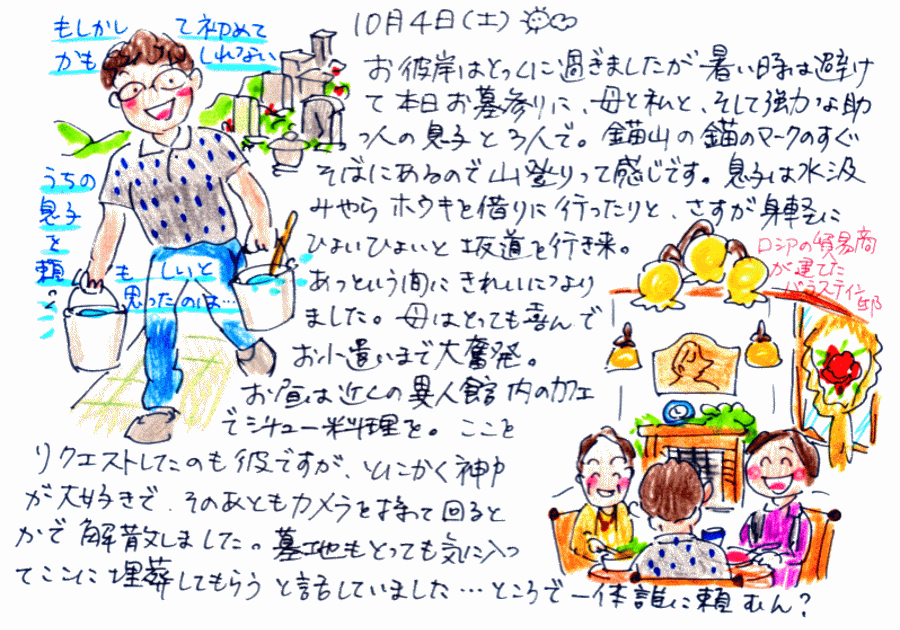 もしかして初めて
かもしれない
うちの
息子
を
頼
もしいと
思ったのは…
10月4日(土)
お彼岸はとっくに過ぎましたが暑い時は避け
て本日お墓参りに、母と私と、そして強力な助
っ人の息子と3人で。錨山の錨のマークのすぐ
そばにあるので山登りって感じです。息子は水汲
みやら ホウキを借りに行ったりと、さすが身軽に
ひょいひょいと坂道を行き来。
あっという間にきれいになり
ました。母はとっても喜んで
お小遣いまで大奮発。
お昼は近くの異人館内のカフェ
でシチュー料理を。ここを
リクエストしたのも彼ですが、とにかく神戸
が大好きで、そのあともカメラを持って回ると
かで解散しました。墓地もとっても気に入っ
てここに埋葬してもらうと話していました…ところで一体誰に頼むん?
ロシアの貿易商
が建てた
パラスティン
邸